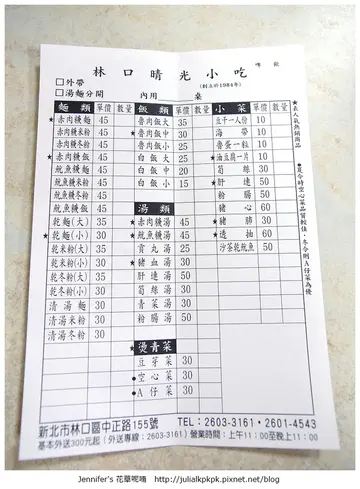 林口晴光小吃
(創立於1984年)
□外帶
□湯麵分開
內用 桌
麵類 單價 數量 飯類 單價 數量 小菜 單價 數量
★赤肉焿麵 45 魯肉飯大 35 豆干一人份 10
赤肉焿米粉 45 魯肉飯中 30 海帶 10
赤肉焿冬粉 45 ★魯肉飯小 25 魯蛋一粒 10
★赤肉焿飯 45 白飯大 25 ★油豆腐一片 10
魷魚焿麵 45 白飯中 20 筍絲 30
魷魚焿米粉 45 白飯小 15 ★肝連 50
魷魚焿冬粉 45 粉腸 50
魷魚焿飯 45 湯類 豬心 60
★乾麵(大) 35 ★赤肉焿湯 45 ★豬肺 30
★乾麵(小) 30 ★魷魚焿湯 45 ★透抽 60
乾米粉(大) 35 貢丸湯 30 沙茶乾魷魚 50
乾米粉(小) 30 ★豬血湯 30
乾冬粉(大) 35 肝連湯 50
乾冬粉(小) 30 筍絲湯 30
清湯麵 30 青菜湯 30
清湯米粉 30 粉腸湯 50
清湯冬粉 30
★燙青菜
豆芽菜 30
●空心菜 30
●A仔菜 30
★表人氣熱銷商品
●夏令時空心菜品質較佳，冬令則A仔菜為優
新北市林口區中正路155號 TEL：2603-3161・2601-4543
基本外送300元起（外送專線：2603-3161）營業時間：上午11：00至晚上11：00
Jennifer's 花草呢喃 http://julialkpkpk.pixnet.net/blog